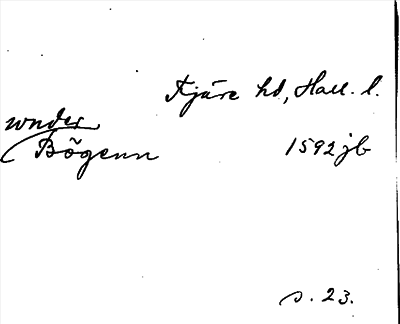 Kjäre hd, Hall. l.
wnder
Bögenn 1592 jb
s. 23.